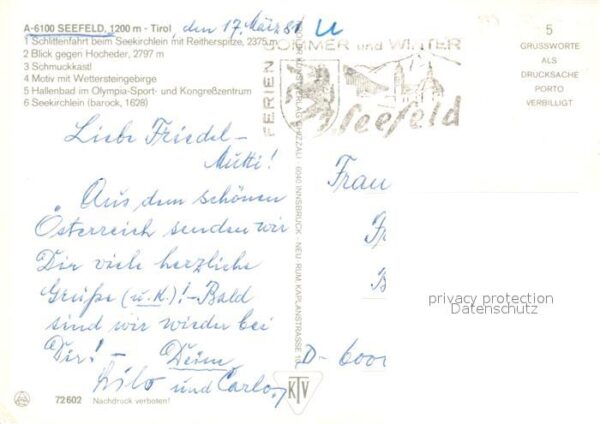 A-6100 SEEFELD, 1200 m - Tirol, den 17. März 81
1 Schlittenfahrt beim Seekirchlein mit Reitherspitze, 2375 m
2 Blick gegen Hocheder, 2797 m
3 Schmuckkastl
4 Motiv mit Wettersteingebirge
5 Hallenbad im Olympia-Sport- und Kongreßzentrum
6 Seekirchlein (barock, 1628)
Liebe Friedel-
Mutti!
Aus dem schönen
Österreich senden wir
Dir viele herzliche
Grüße (u.K.)! - Bald
sind wir wieder bei
Dir! - Deine
Lilo und Carlo,
72602 Nachdruck verboten!
6040 INNSBRUCK - NEU RUM KAPLANSTRASSE
KTV
FERIEN
SOMMER und WINTER
Seefeld
5
GRUSSWORTE
ALS
DRUCKSACHE
PORTO
VERBILLIGT
Frau
D-600
privacy protection
Datenschutz